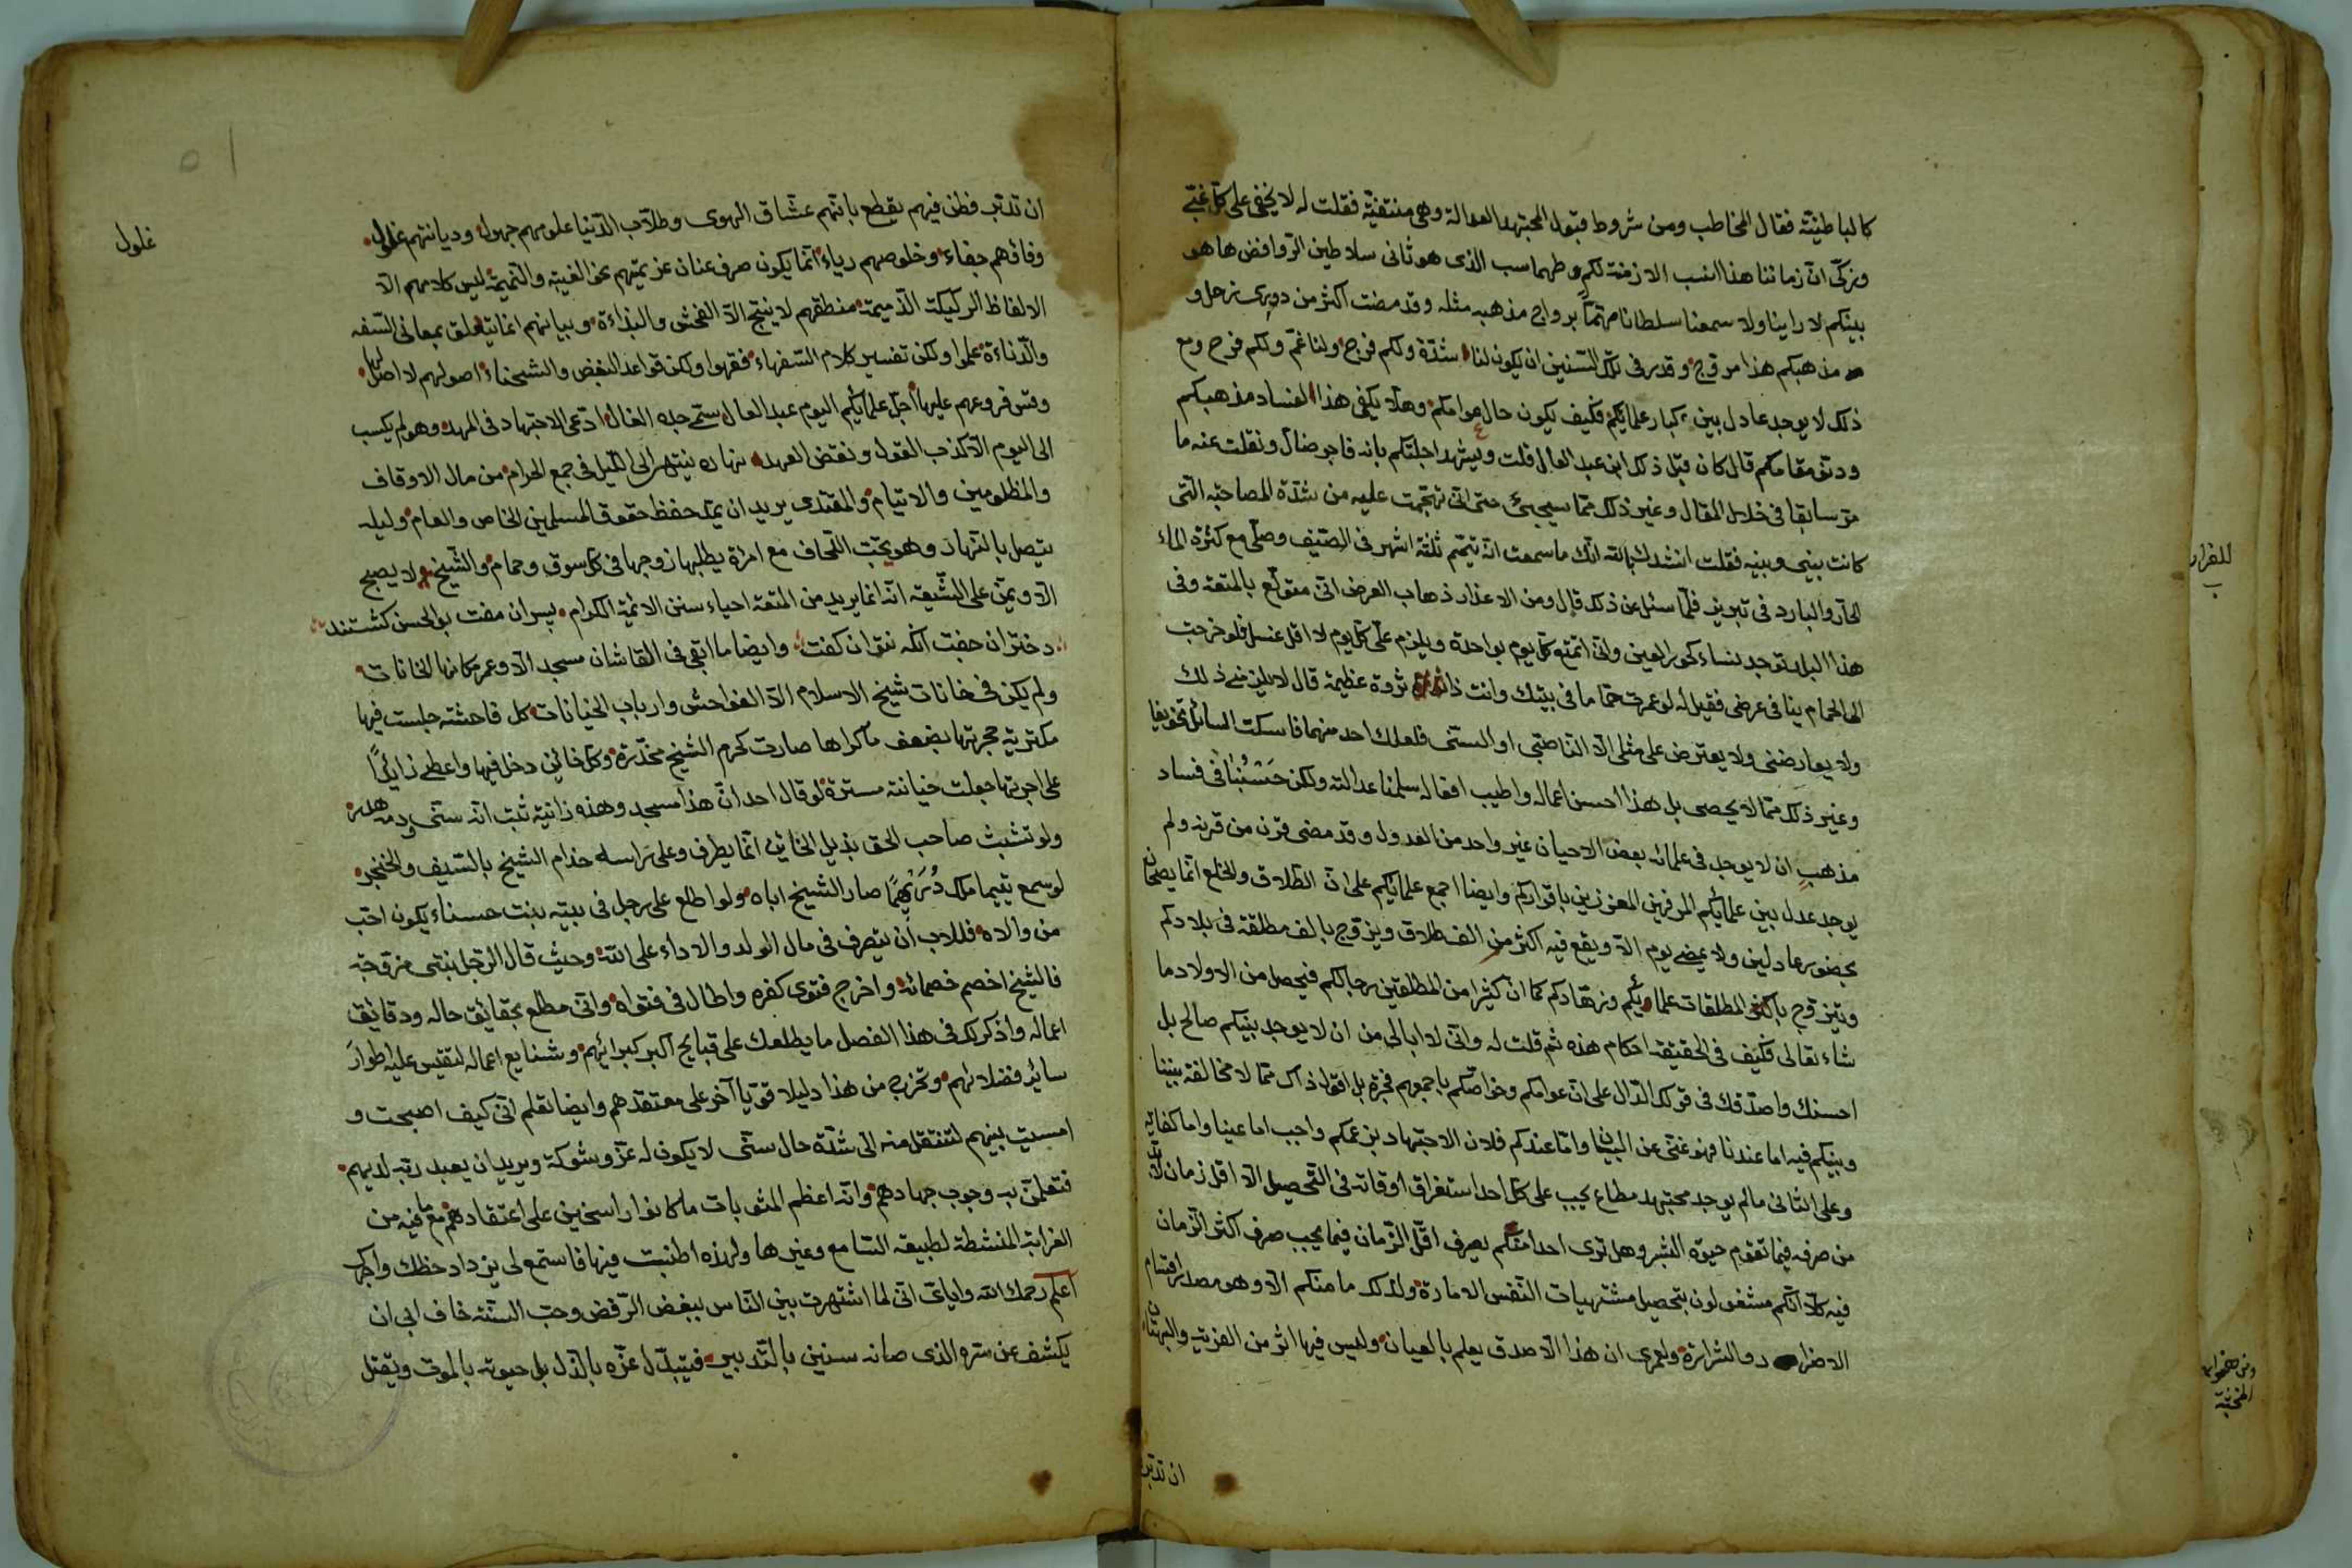 كالباطنية فقال المخاطب ومن شروط قبول المجتهد العدالة وهى منتفية فقلت له لا يخفى على كل غبى
وزكى ان زماننا هذا انسب الازمنة لكم وطهماسب الذى هو ثانى سلاطين الروافض ها هو
بينكم لا راينا ولا سمعنا سلطانا مهتما برواج مذهبه مثله وقد مضت اكثر من دورى زحل و
مذهبكم هذا مروج وقدر فى تلك السنين ان يكون لنا شدة ولكم فرج ولنا غم ولكم فرح ومع
ذلك لا يوجد عادل بين كبار علمائكم فكيف يكون حال عوامكم وهلا يكفى هذا لفساد مذهبكم
ودنو مقامكم قال كان قبل ذلك ابن عبد العال قلت ويشهد اجلتكم بانه فاجر ضال ونقلت عنه ما
مر سابقا فى خلال المقال وغير ذلك مما سيجئ حتى انى تهجمت عليه من شدة المصاحبة التى
كانت بينى وبينه فقلت انشدك بالله انك ما سمعت انه تيمم ثلثة اشهر فى الصيف وصلى مع كثرة الماء
الحار والبارد فى تبريز فلما سئل عن ذلك قال ومن الاعذار ذهاب العرض انى مولع بالمتعة وفى
هذا البلد توجد نساء كحور العين وانى اتمتع كل يوم بواحدة ويلزم على كل يوم لا اقل غسل فلو خرجت
الى الحمام ينافى عرضى فقيل له لو عمرت حماما فى بيتك وانت ذا ثروة عظيمة قال لا يلزمنى ذلك
ولا يعارضنى ولا يعترض على مثلى الا الناصبى او السنى فلعلك احد منهما فاسكت السائل تخويفا
وغير ذلك مما لا يحصى بل هذا احسن اعماله واطيب افعاله سلمنا عدالته ولكن حسبنا فى فساد
مذهب ان لا يوجد فى علمائه بعض الاحيان غير واحد من العدول وقد مضى قرن من قرنه ولم
يوجد عدل بين علمائكم المرفهين المعززين باقراركم وايضا اجمع علمائكم على ان الطلاق والخلع انما يصحان
بحضور عادلين ولا يمضى يوم الا ويقع فيه اكثر من الف طلاق ويزوج بالف مطلقة فى بلادكم
ويتزوج باكثر المطلقات علمائكم وزهادكم كما ان كثيرا من المطلقين رجالكم فيحصل من الاولاد ما
شاء تعالى فكيف فى الحقيقة احكام هذه ثم قلت له وانى لا ابالى من ان لا يوجد بينكم صالح بل
احسنك واصدقك فى قولك الدال على ان عوامكم وخواصكم باجمعهم فجرة بل اقول ذاك مما لا مخالفة بيننا
وبينكم فيه اما عندنا فهو غنى عن البيان واما عندكم فلان الاجتهاد بزعمكم واجب اما عينا واما كفاية
وعلى الثانى مالم يوجد مجتهد مطاع يجب على كل احد استغراق اوقاته فى التحصيل الا اقل زمان لابد
من صرفه فيما تقوم حيوة البشر وهل ترى احدا منكم يصرف اقل الزمان فيما يجب صرف اكثر الزمان
فيه كلا انكم مشغولون بتحصيل مشتهيات النفس الامارة ولذلك ما منكم الا وهو مصدر اقسام
الاضرار والشرارة ولعمرى ان هذا الا صدق يعلم بالعيان وليس فيها اثر من الفرية والبهتان
ان تدبر
للفرار
ان تدبر فطن فيهم يقطع بانهم عشاق الهوى وطلاب الدنيا علومهم جهول وديانتهم غلول
غلول
وفائهم جفاء وخلوصهم رياء انما يكون صرف عنان عزيمتهم نحو الغيبة والنميمة ليس كلامهم الا
الالفاظ الركيكة الذميمة منطقهم لا ينتج الا الفحش والبذاءة وبيانهم انما يتعلق بمعانى السفه
والدناءة علموا ولكن تفسير كلام السفهاء فقهوا ولكن قواعد البغض والشحناء اصولهم لا اصل لها
وقس فروعهم عليها اجل علمائكم اليوم عبد العال سمى جده الغال ادعى الاجتهاد فى المهد وهو لم يكسب
الى اليوم الا كذب القول ونقض العهد نهاره ينتهى الى الليل فى جمع الحرام من مال الاوقاف
والمظلومين والايتام والمقتدى يريد ان يمد حفظ حقوق المسلمين الخاص والعام وليله
يتصل بالنهار وهو تحت اللحاف مع امراة يطلبها زوجها فى كل سوق وحمام والشيخ لا يصبح
الا ويمن على الشيعة انه انما يريد من المتعة احياء سنن الائمة الكرام پسران مفت بو الحسن كشتند
دختران جفت آنكه نتوان كفت وايضا ما ابقى فى القاشان مسجد الا وعمر مكانها الخانات
ولم يكن فى خانات شيخ الاسلام الا الفواحش وارباب الخيانات كل فاحشة جلست فيها
مكترية حجرتها بضعف ما كراها صارت كحرم الشيخ مخدرة وكل خائن دخل فيها واعطى زائدا
على اجرتها جعلت خيانته مسترة لو قال احد ان هذا مسجد وهذه زانية ثبت انه سنى ودمه هدر
ولو تشبث صاحب الحق بذيل الخائن انما يطرف وعلى راسه خدام الشيخ بالسيف والخنجر
لو سمع يتيما ملك درهما صار الشيخ اباه ولو اطلع على رجل فى بيته بنت حسناء يكون احب
من والاه فللاب ان يتصرف فى مال الولد والاداء على الله وحيث قال الرجل بنتى مزوجة
فالشيخ اخصم خصمائه واخرج فتوى كفره واطال فى فتواه وانى مطلع بحقائق حاله ودقائق
اعماله واذكر لك فى هذا الفصل ما يطلعك على قبايح اكبر كبرائهم وشنايع اعماله لتقيس عليه اطوار
سائر فضلائهم وتخرج من هذا دليلا قويا آخر على معتقدهم وايضا تعلم انى كيف اصبحت و
امسيت بينهم لتنتقل منه الى شدة حال سنى لا يكون له عز وشوكة ويريد ان يعبد ربه لديهم
فتعلن به وجوب جهادهم وانه اعظم المثوبات ما كانوا راسخين على اعتقادهم مع ما فيه من
الغرابة المنشطة لطبيعة السامع وغيرها ولهذه اطنبت فيها فاستمع لى يزداد حظك واجرك
اعلم رحمك الله واياى انى لما اشتهرت بين الناس ببغض الرفض وحب السنة خاف ابى ان
يكشف عن سره الذى صانه سنين بالتدبير فيتبدل عزه بالذل بل حيوته بالموت ويقتل